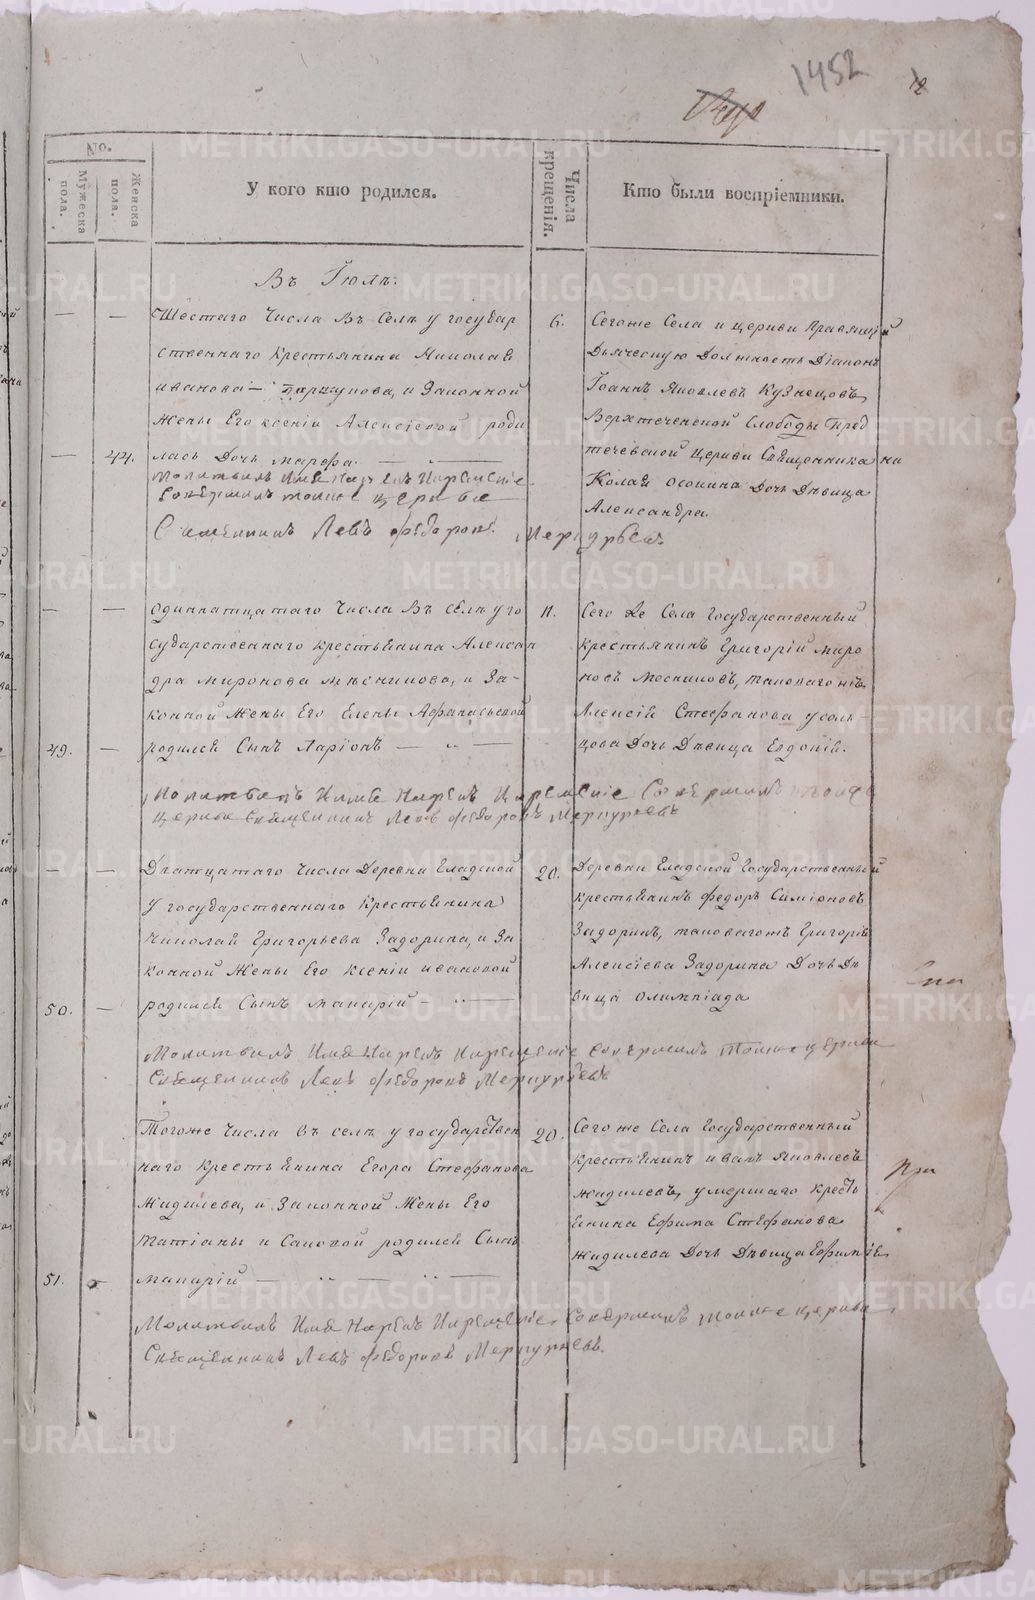 1452
12
№.
Мужеска пола.
Женска пола.
У кого кто родился.
Числа крещенія.
Кто были воспріемники.
Въ Іюлѣ.
— — Шестаго Числа Въ Селѣ у государ
ственнаго Крестьянина Николая
иванова — Паршукова, и Законной
Жены Его ксеніи Алексіевой роди
— 44. лась Дочь марѳа. — —
Молитвилъ Имя Нарекъ И крещеніе
Совершилъ тоя же церкви
Священникъ Левъ Ѳедоровъ Меркурьевъ.
6. Сегоже Села и церкви Правящій
Дьяческую Должность Діаконъ
Іоаннъ Яковлевъ Кузнецовъ,
Верхтеченской Слободы Пред
течевской Церкви Священника Ни
Колая Осокина Дочь Дѣвица
Александра.
— — Одиннатцатаго Числа Въ Селѣ у го
сударственнаго крестьянина Алексан
дра миронова мѣсникова, и За-
конной Жены Его Елены Аѳанасьевой
49. — родился Сынъ Ларіонъ — „ —
11. Сего же Села Государственный
крестьянинъ Григорій миро
новъ Месниковъ, таковагожъ
Алексія Стефанова усоль-
цова Дочь Дѣвица Евдокія.
Молитвилъ Имя Нарекъ И крещеніе Совершилъ тояже
Церкви Священникъ Левъ Ѳедоровъ Меркурьевъ
— — Дватцатаго Числа Деревни Гладской
У государственнаго Крестьянина
Николая Григорьева Задорина, и За
конной Жены Его ксеніи ивановой
50. — родился Сынъ макарій — „ —
20. Деревни Гладской Государственный
крестьянинъ Федоръ Симіоновъ
Задоринъ, таковагожъ Григорія
Алексіева Задорина Дочь Дѣ
вица олимпіада
Молитвилъ Имя Нарекъ И крещеніе Совершилъ Тоя же церкви
Священникъ Левъ Ѳедоровъ Меркурьевъ
Тогоже Числа въ селѣ у государствен
наго крестьянина Егора Стефанова
Жидилева, и Законной Жены Его
Татіаны и Саковой родился Сынъ
51. макарій — „ — „ —
20. Сегоже Села Государственный
крестьянинъ иванъ Яковлевъ
жидилевъ, умершаго кресть
янина Ефима Стефанова
жидилева Дочь Дѣвица Ефимія.
Молитвилъ Имя Нарекъ И крещеніе Совершилъ тоя же церкви
Священникъ Левъ Ѳедоровъ Меркурьевъ.
METRIKI.GASO-URAL.RU